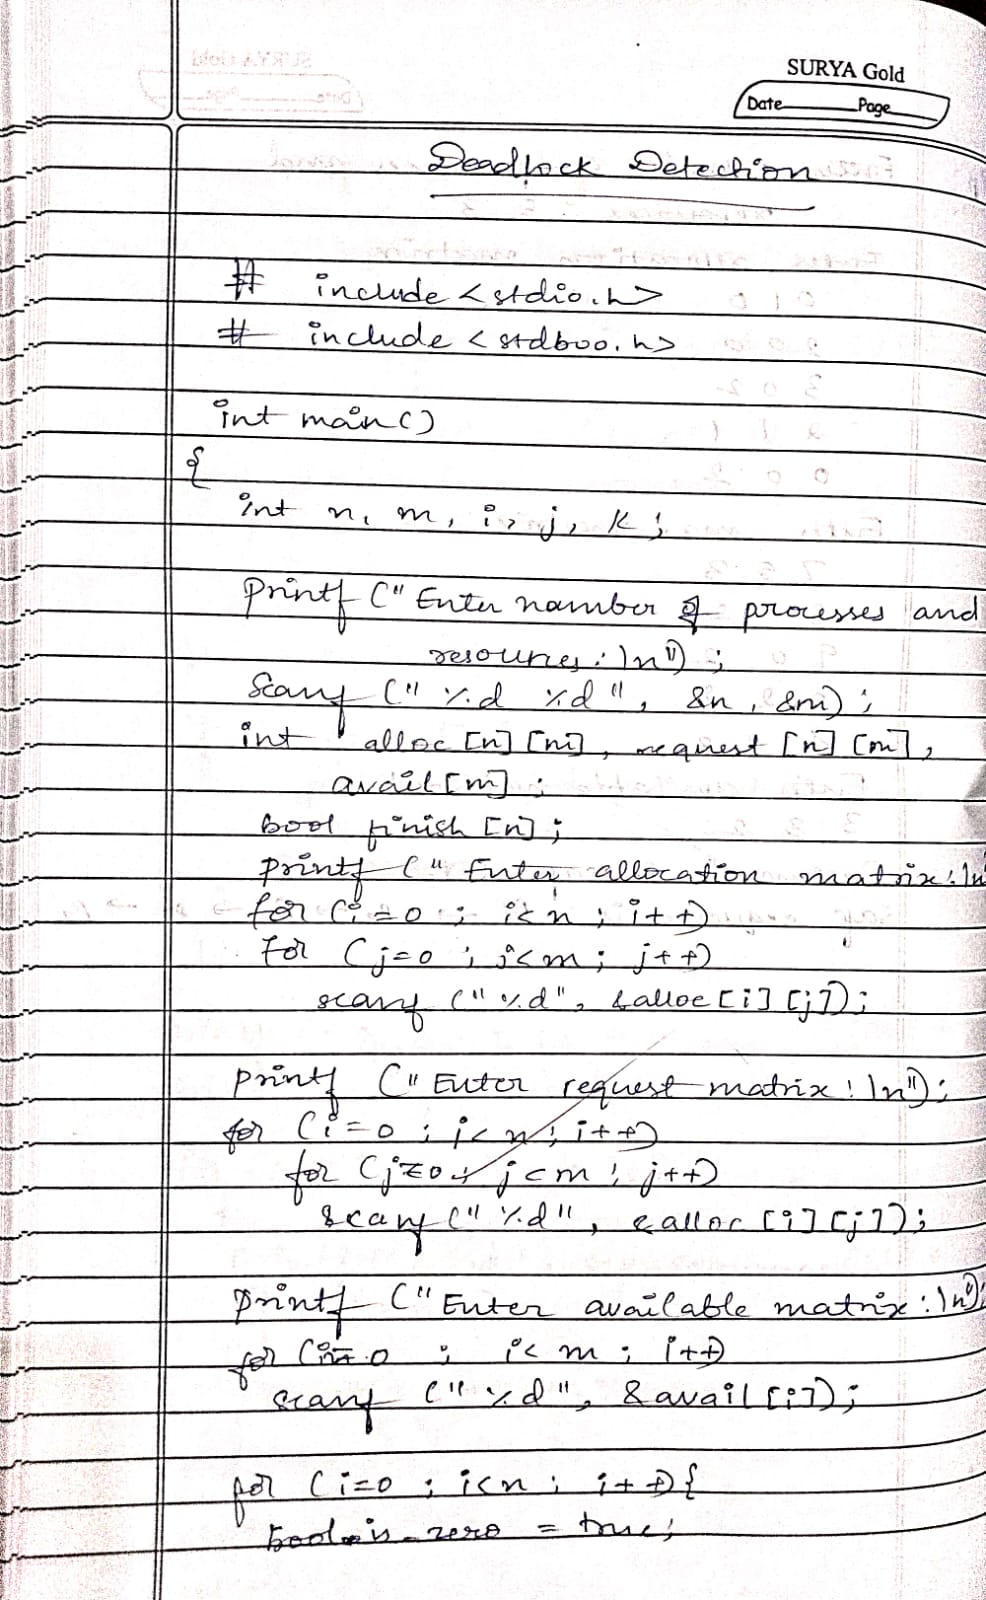 SURYA Gold
Date Page
Deadlock Detection
# include <stdio.h>
# include <stdboo.h>
int main()
{
int n, m, i, j, k;
printf ("Enter number of processes and
resources:\n");
Scanf ("%d %d", &n, &m);
int alloc [n] [m], request [n] [m],
avail [m];
bool finish [n];
printf ("Enter allocation matrix:\n
for (i=0; i<n; i++)
for (j=0; j<m; j++)
scanf ("%d", &alloc [i] [j]);
printf ("Enter request matrix:\n");
for (i=0; i<n; i++)
for (j=0; j<m; j++)
scanf ("%d", &alloc [i] [j]);
printf ("Enter available matrix:\n");
for (i=0; i<m; i++)
scanf ("%d", &avail [i]);
for (i=0; i<n; i++){
bool is_zero = true;